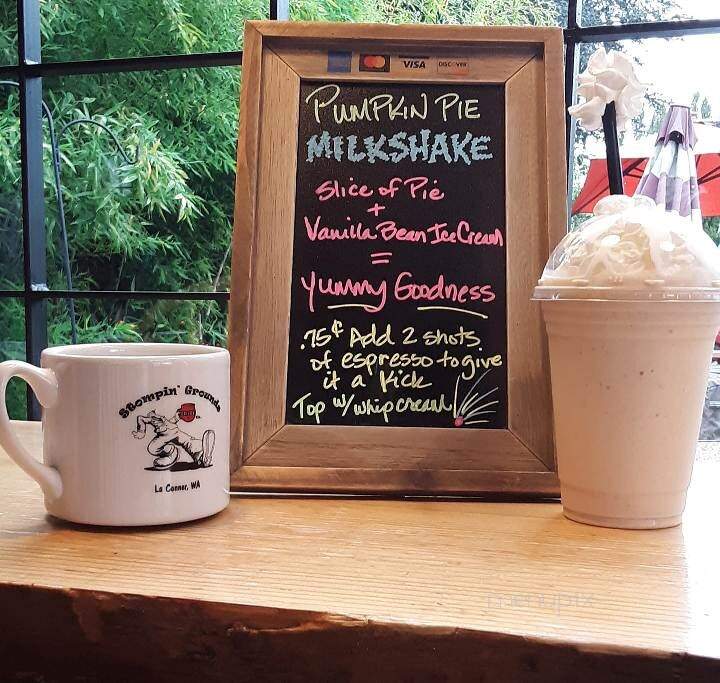 VISA
DISCOVER
PUMPKIN PIE
MILKSHAKE
Slice of Pie
+
Vanilla Bean Ice Cream
=
Yummy Goodness
.75¢ Add 2 shots
of espresso to give
it a Kick
Top w/ whip cream!
Stompin' Grounds
La Conner, WA
menupix